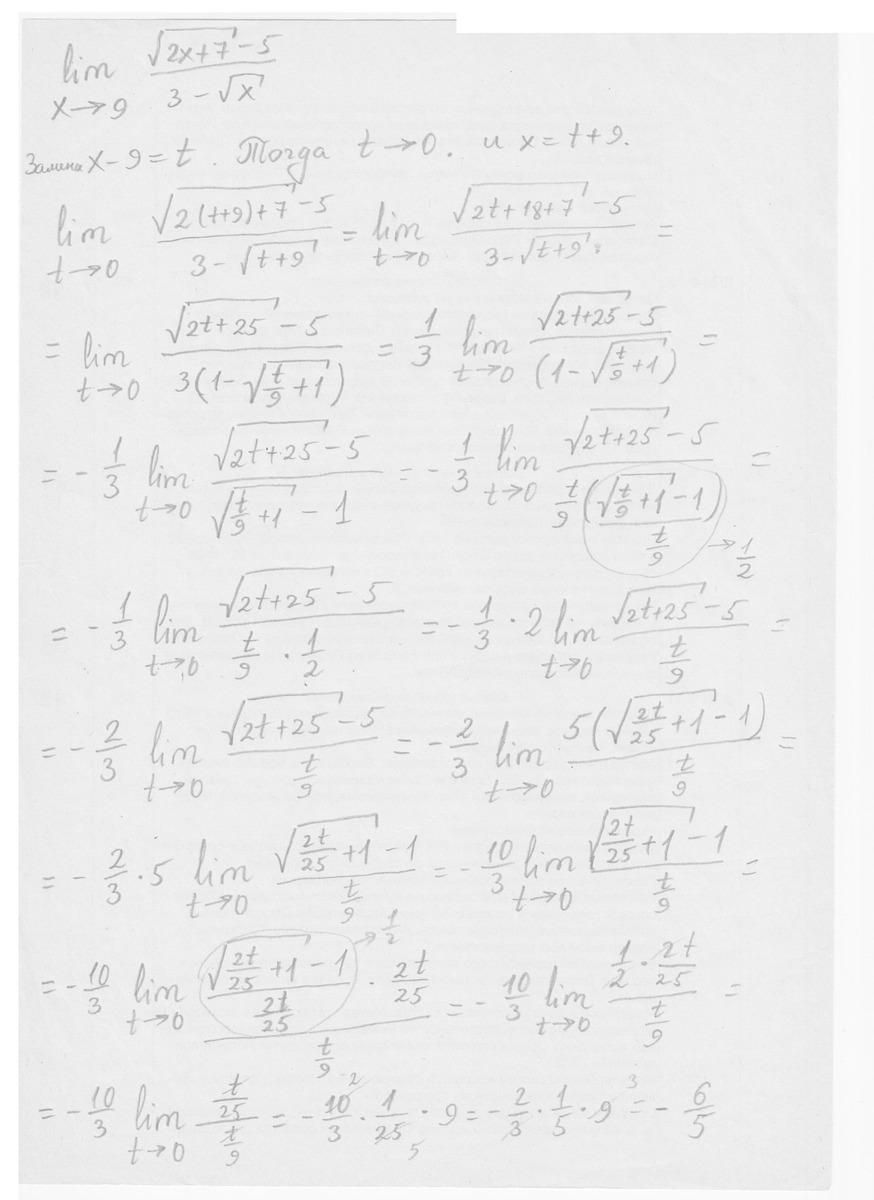 lim x→9 (√(2x+7) - 5)/(3 - √x)
Замена x - 9 = t. Тогда t→0. и x = t+9.
lim t→0 (√(2(t+9)+7) - 5)/(3 - √(t+9)) = lim t→0 (√(2t+18+7) - 5)/(3 - √(t+9)) =
= lim t→0 (√(2t+25) - 5)/(3(1 - √(t/9 + 1))) = 1/3 lim t→0 (√(2t+25) - 5)/((1 - √(t/9 + 1))) =
= - 1/3 lim t→0 (√(2t+25) - 5)/(√(t/9 + 1) - 1) = - 1/3 lim t→0 (√(2t+25) - 5)/(t/9 ((√(t/9 + 1) - 1)/(t/9))) → 1/2 =
= - 1/3 lim t→0 (√(2t+25) - 5)/(t/9 · 1/2) = - 1/3 · 2 lim t→0 (√(2t+25) - 5)/(t/9) =
= - 2/3 lim t→0 (√(2t+25) - 5)/(t/9) = - 2/3 lim t→0 (5(√(2t/25 + 1) - 1))/(t/9) =
= - 2/3 · 5 lim t→0 (√(2t/25 + 1) - 1)/(t/9) = - 10/3 lim t→0 (√(2t/25 + 1) - 1)/(t/9) =
= - 10/3 lim t→0 ((√(2t/25 + 1) - 1)/(2t/25) → 1/2 · 2t/25)/(t/9) = - 10/3 lim t→0 (1/2 · 2t/25)/(t/9) =
= - 10/3 lim t→0 (t/25)/(t/9) = - 10/3 2 · 1/25 5 · 9 = - 2/3 · 1/5 · 9 3 = - 6/5